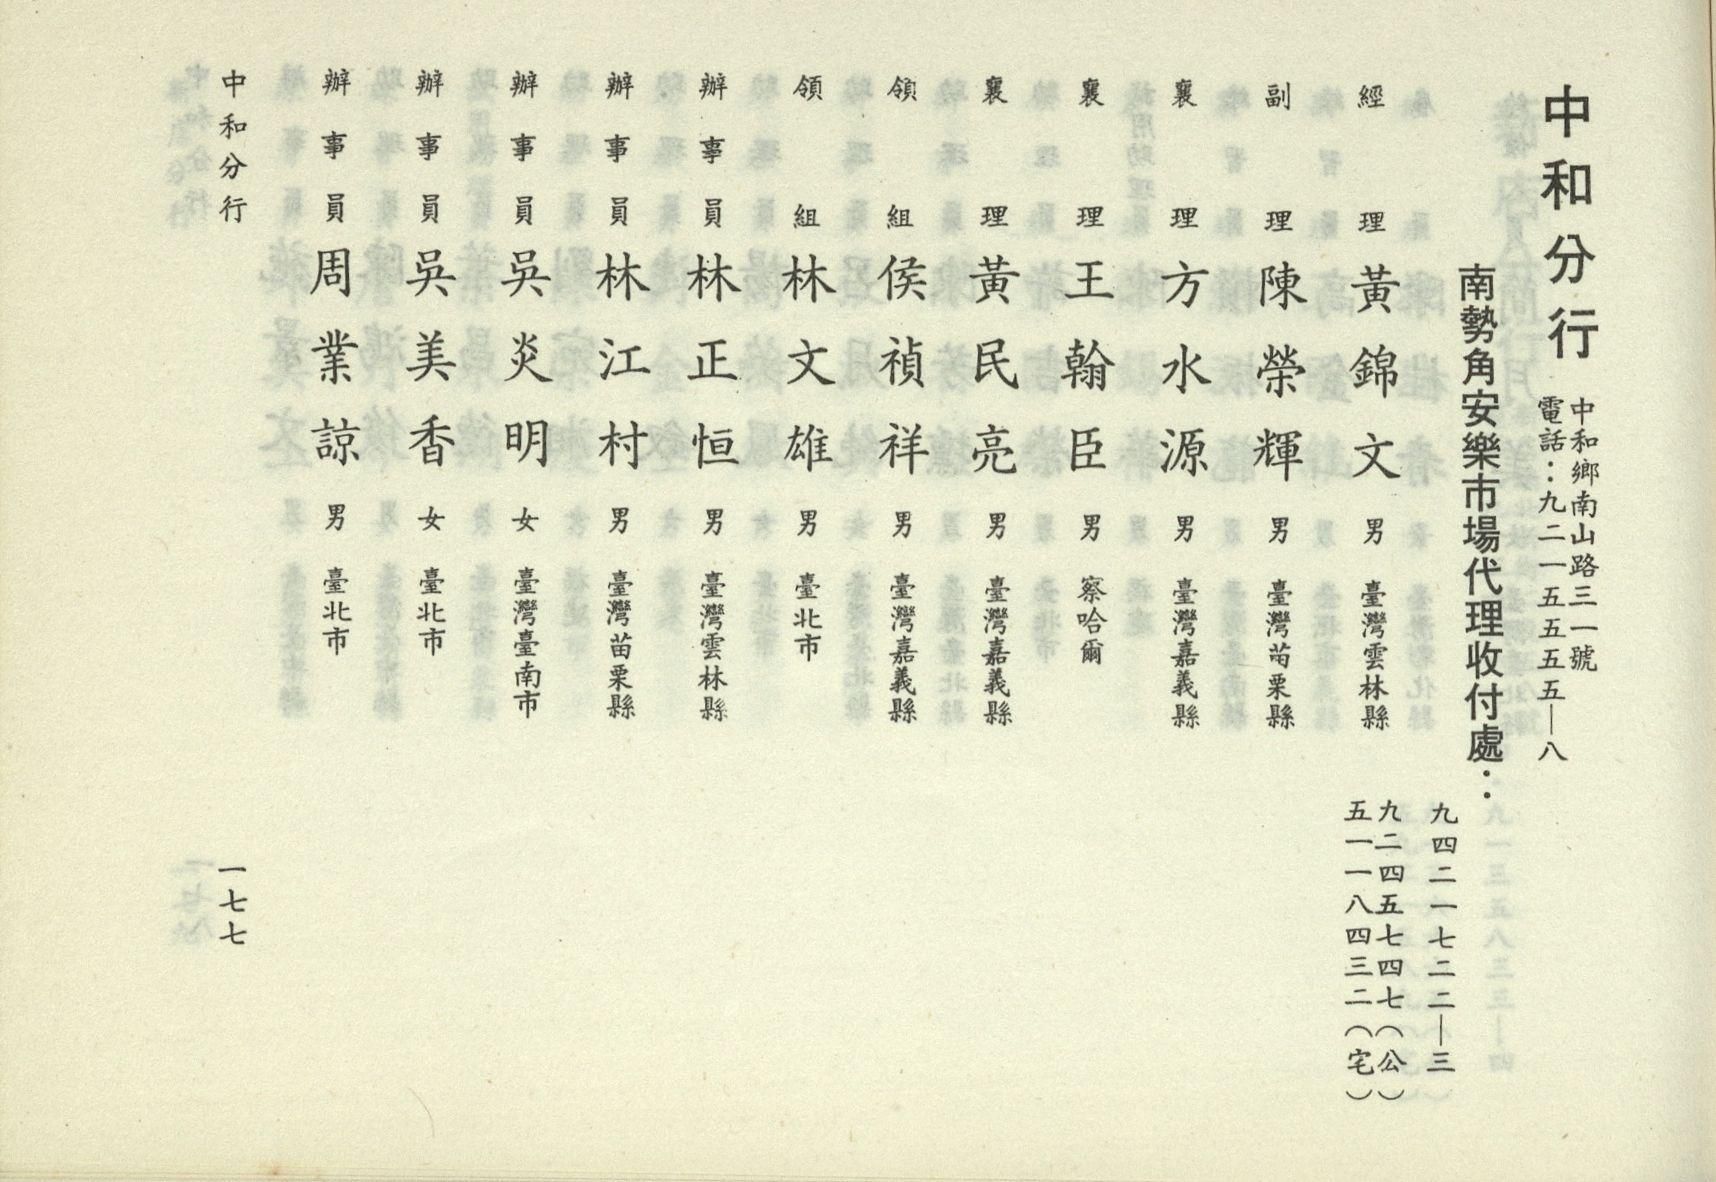 中和分行
中和鄉南山路三一號
電話：九二一五五五五—八
南勢角安樂市場代理收付處：九四二一七二二—三
經理 黃錦文 男 臺灣雲林縣 九二四五七四七（公）
五一一八四三二（宅）
副理 陳榮輝 男 臺灣苗栗縣
襄理 方水源 男 臺灣嘉義縣
襄理 王翰臣 男 察哈爾
襄理 黃民亮 男 臺灣嘉義縣
領組 侯禎祥 男 臺灣嘉義縣
領組 林文雄 男 臺北市
辦事員 林正恒 男 臺灣雲林縣
辦事員 林江村 男 臺灣苗栗縣
辦事員 吳炎明 女 臺灣臺南市
辦事員 吳美香 女 臺北市
辦事員 周業諒 男 臺北市
中和分行
一七七